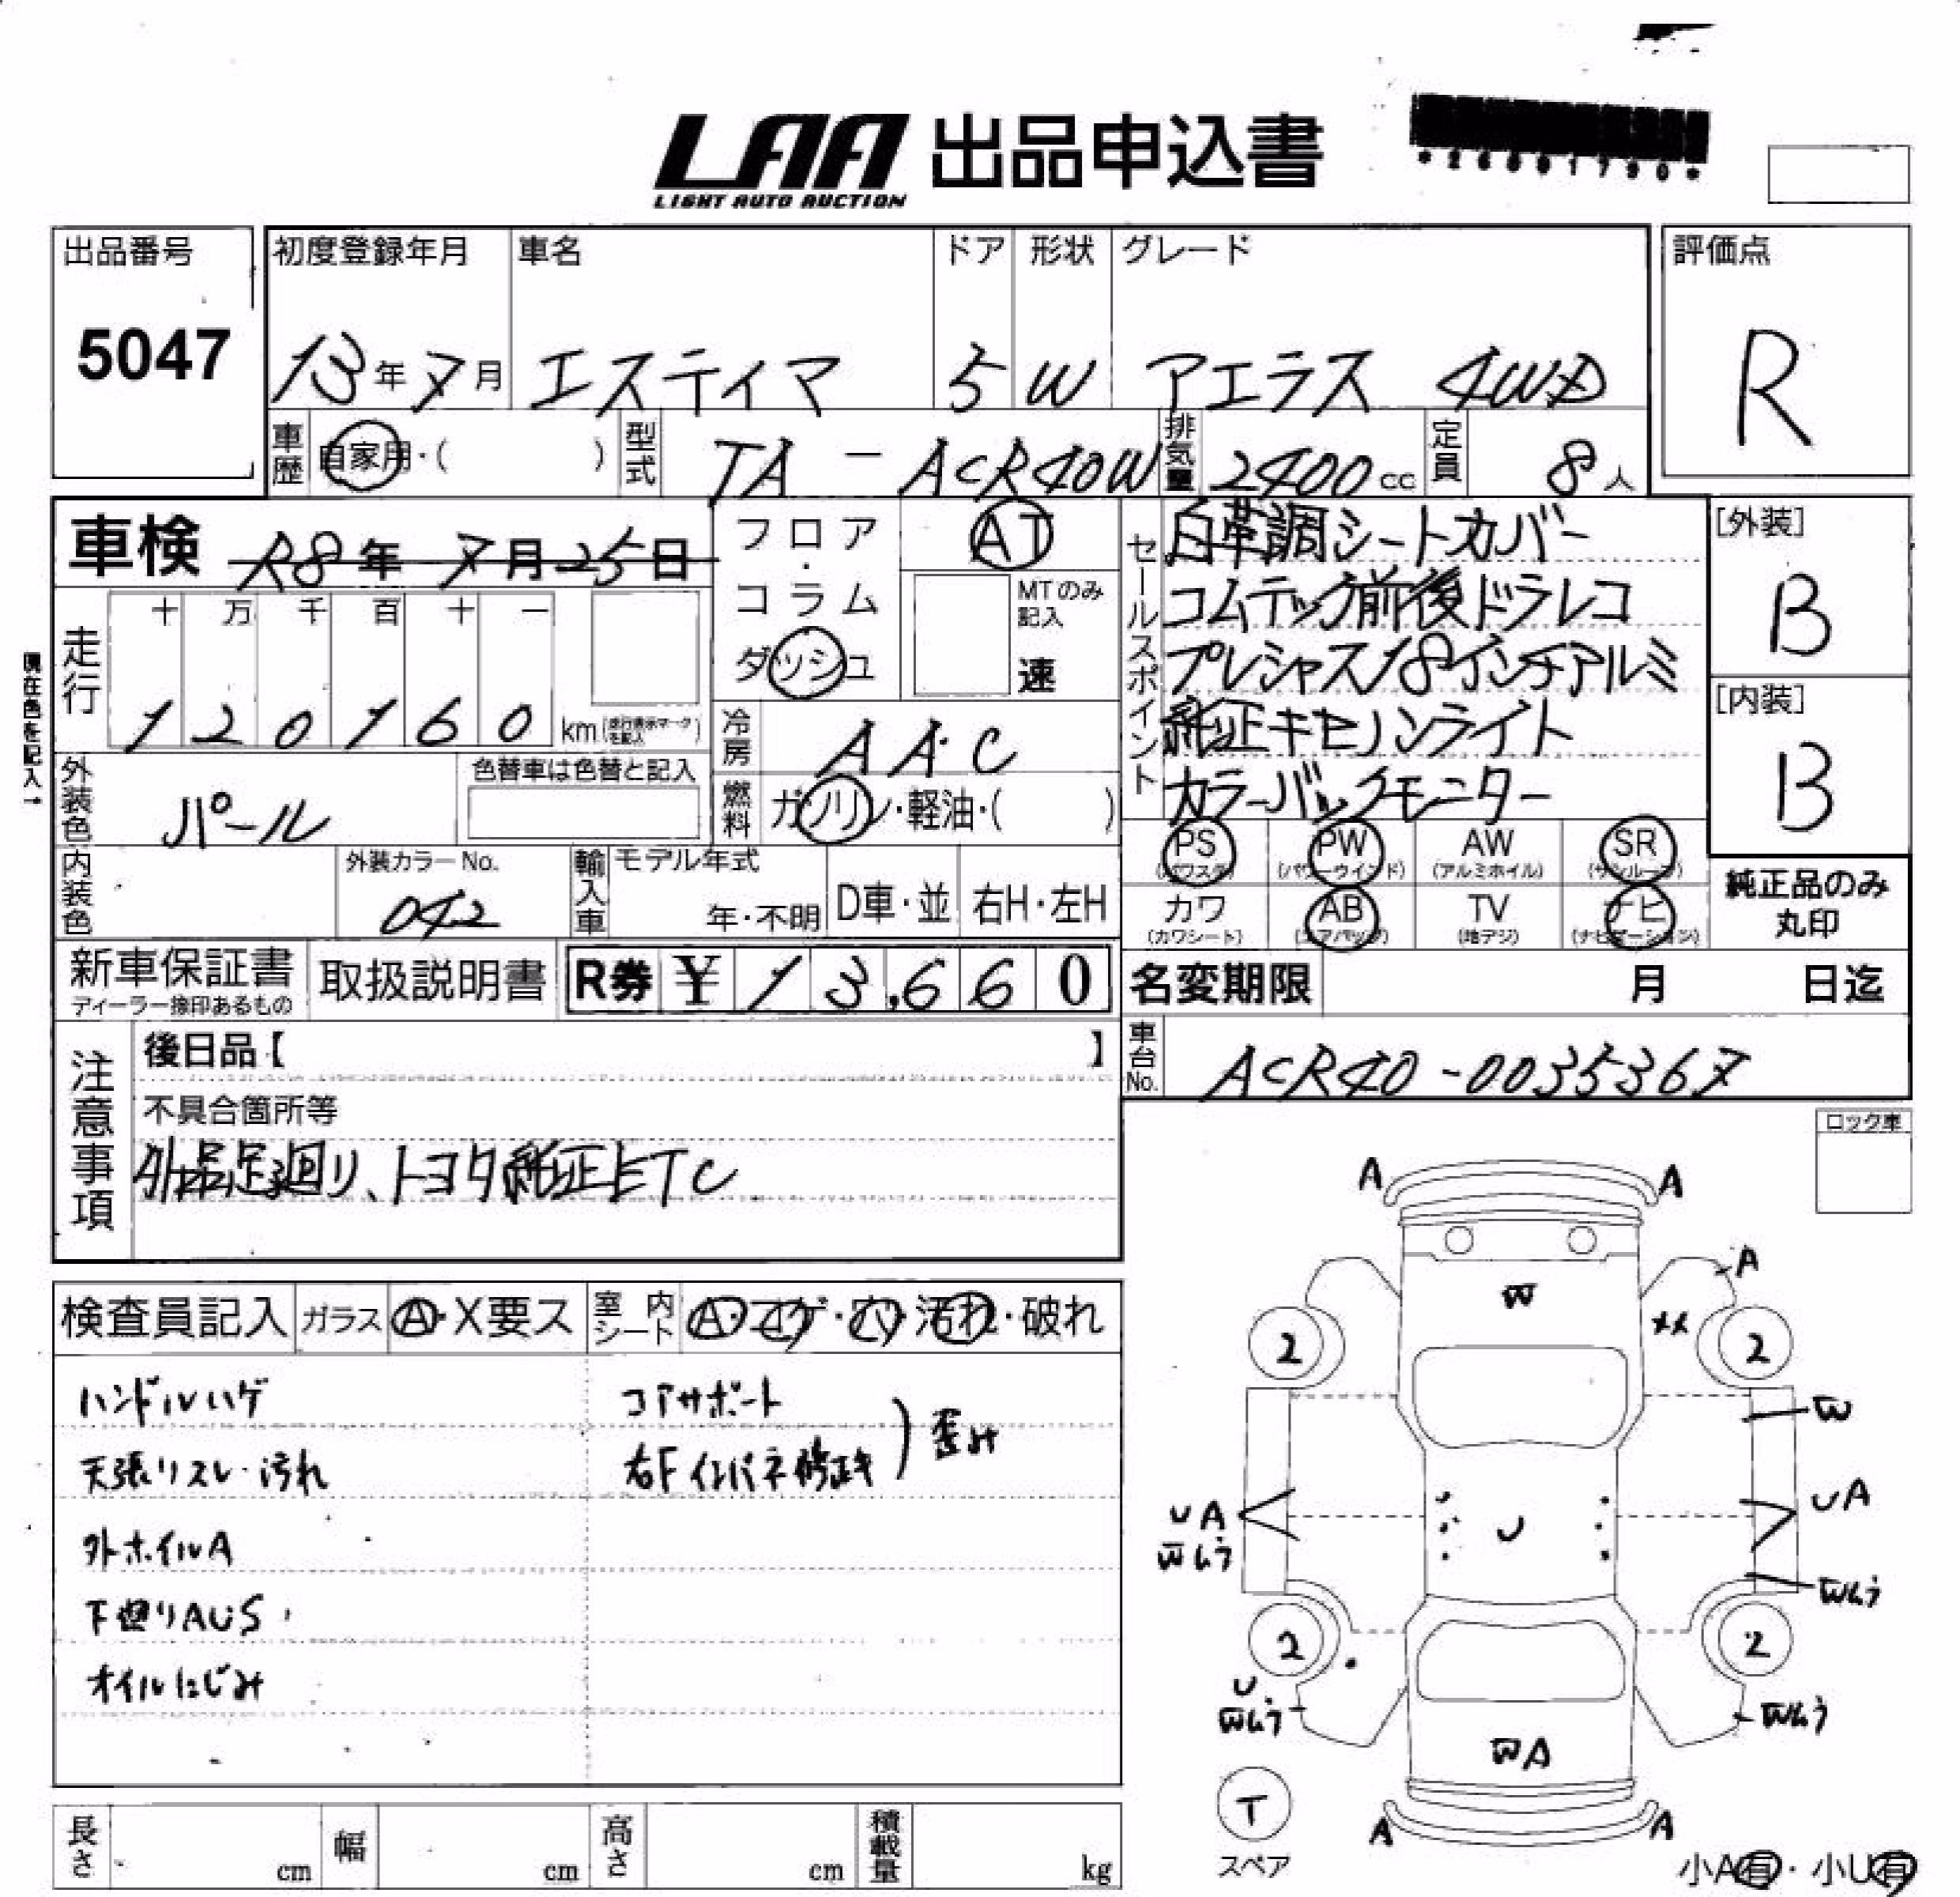 LAA 出品申込書
LIGHT AUTO AUCTION
*26801790*
出品番号
5047
初度登録年月
13年7月
車名
エスティマ
ドア
5
形状
W
グレード
アエラス 4WD
評価点
R
車歴
自家用・( )
型式
TA - ACR40W
排気量
2400cc
定員
8人
車検 R8年7月25日
フロア・コラム
ダッシュ
AT
MTのみ記入
速
現在色を記入→
走行
十 万 千 百 十 一
1 2 0 1 6 0 km(走行表示マークを記入)
冷房
AAC
外装色
パール
色替車は色替と記入
燃料
ガソリン・軽油・( )
内装色
外装カラーNo.
042
輸入車
モデル年式
年・不明
D車・並
右H・左H
新車保証書
ディーラー捺印あるもの
取扱説明書
R券 ¥13,660
セールスポイント
白革調シートカバー
コムテック前後ドラレコ
プレシャス18インチアルミ
純正キセノンライト
カラーバックモニター
[外装]
B
[内装]
B
PS (パワステ)
PW (パワーウインド)
AW (アルミホイル)
SR (サンルーフ)
カワ (カワシート)
AB (エアバッグ)
TV (地デジ)
ナビ (ナビゲーション)
純正品のみ
丸印
名変期限 月 日迄
車台No.
ACR40-0035367
注意事項
後日品【 】
不具合箇所等
外品足廻り、トヨタ純正ETC
ロック車
検査員記入
ガラス A・X要ス
室内シート A・コゲ・穴・汚れ・破れ
ハンドルハゲ
天張リスレ・汚れ
外ホイルA
下廻りAUS
オイルにじみ
コアサポート
右Fインパネ修正キ
) 歪み
A A
A
W
××
2 2
W
UA
Wムラ
U
UA
Wムラ
2 2
U
Wムラ
Wムラ
WA
T
スペア
A A
小A有・小U有
長さ cm
幅 cm
高さ cm
積載量 kg